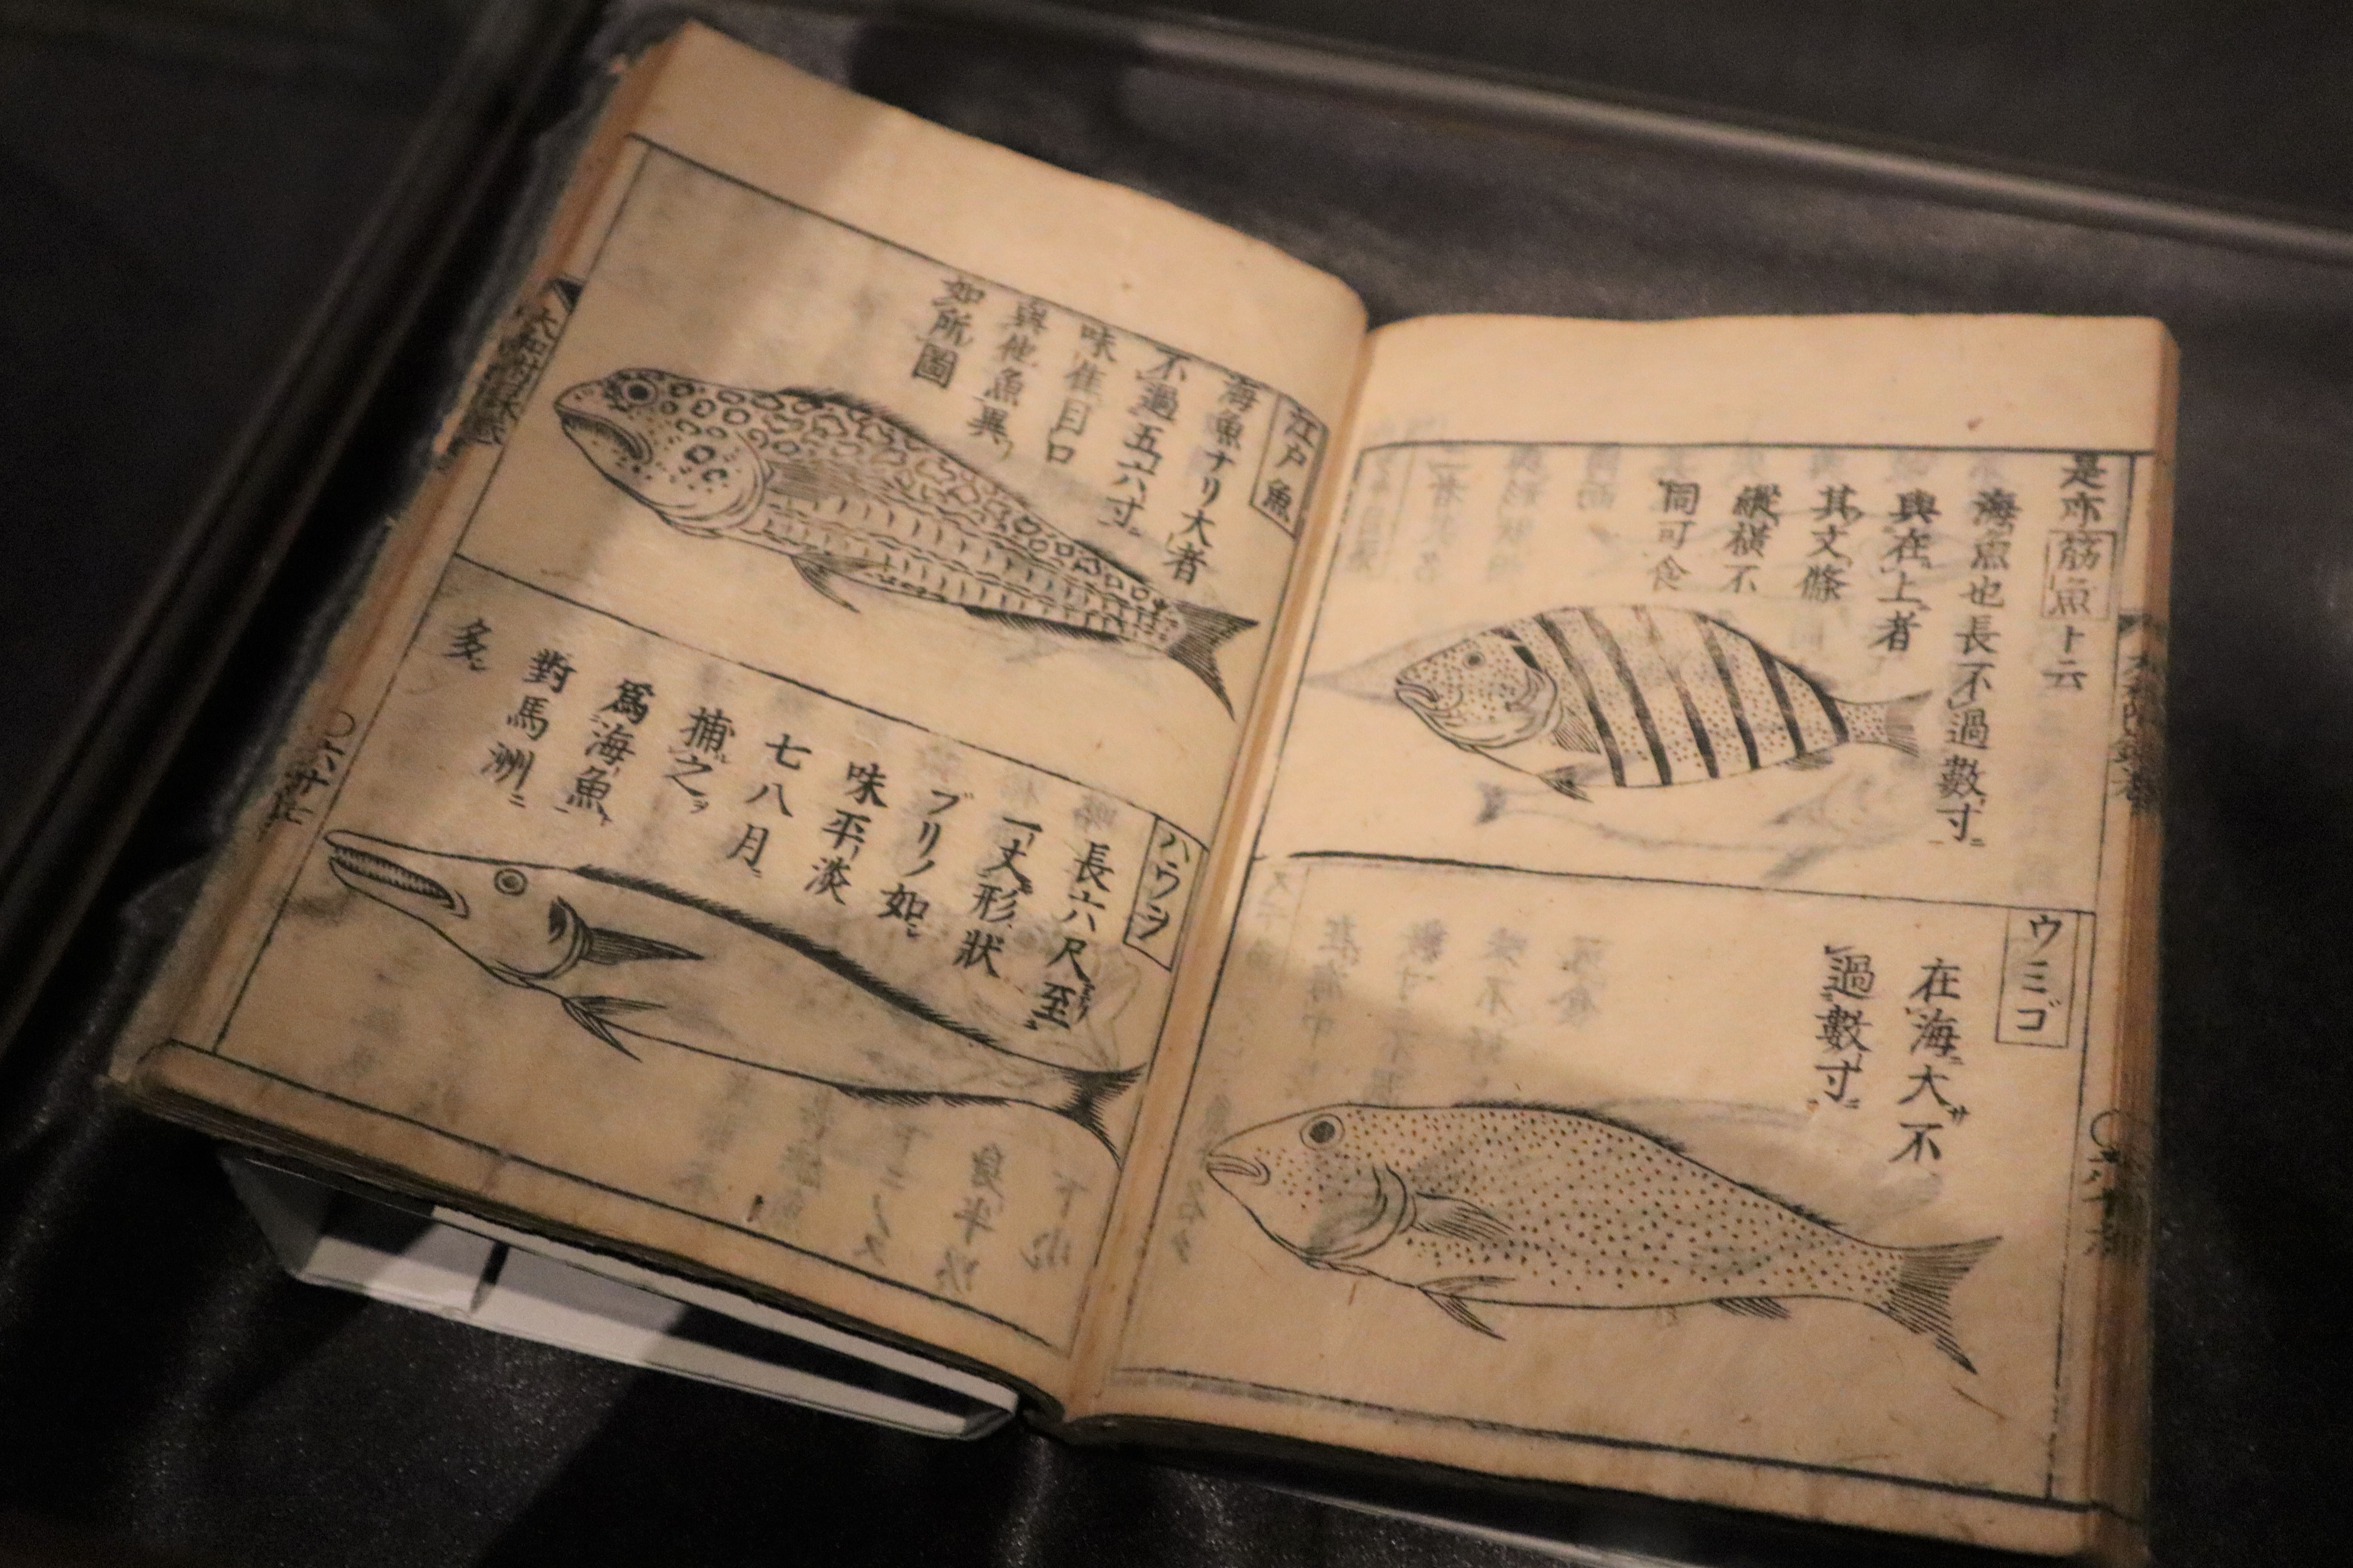 是亦筋魚ト云
海魚也長不過數寸
與在上者
其文條
縱横不
同可食
ウミゴ
在海大サ不
過數寸
江戸魚
海魚ナリ大者
不過五六寸
味佳目口
與他魚異
如所圖
ハウヲ
長六尺至
一丈形狀
ブリノ如
味平淡
七八月
捕之ヲ
爲海魚
對馬洲ニ
多シ